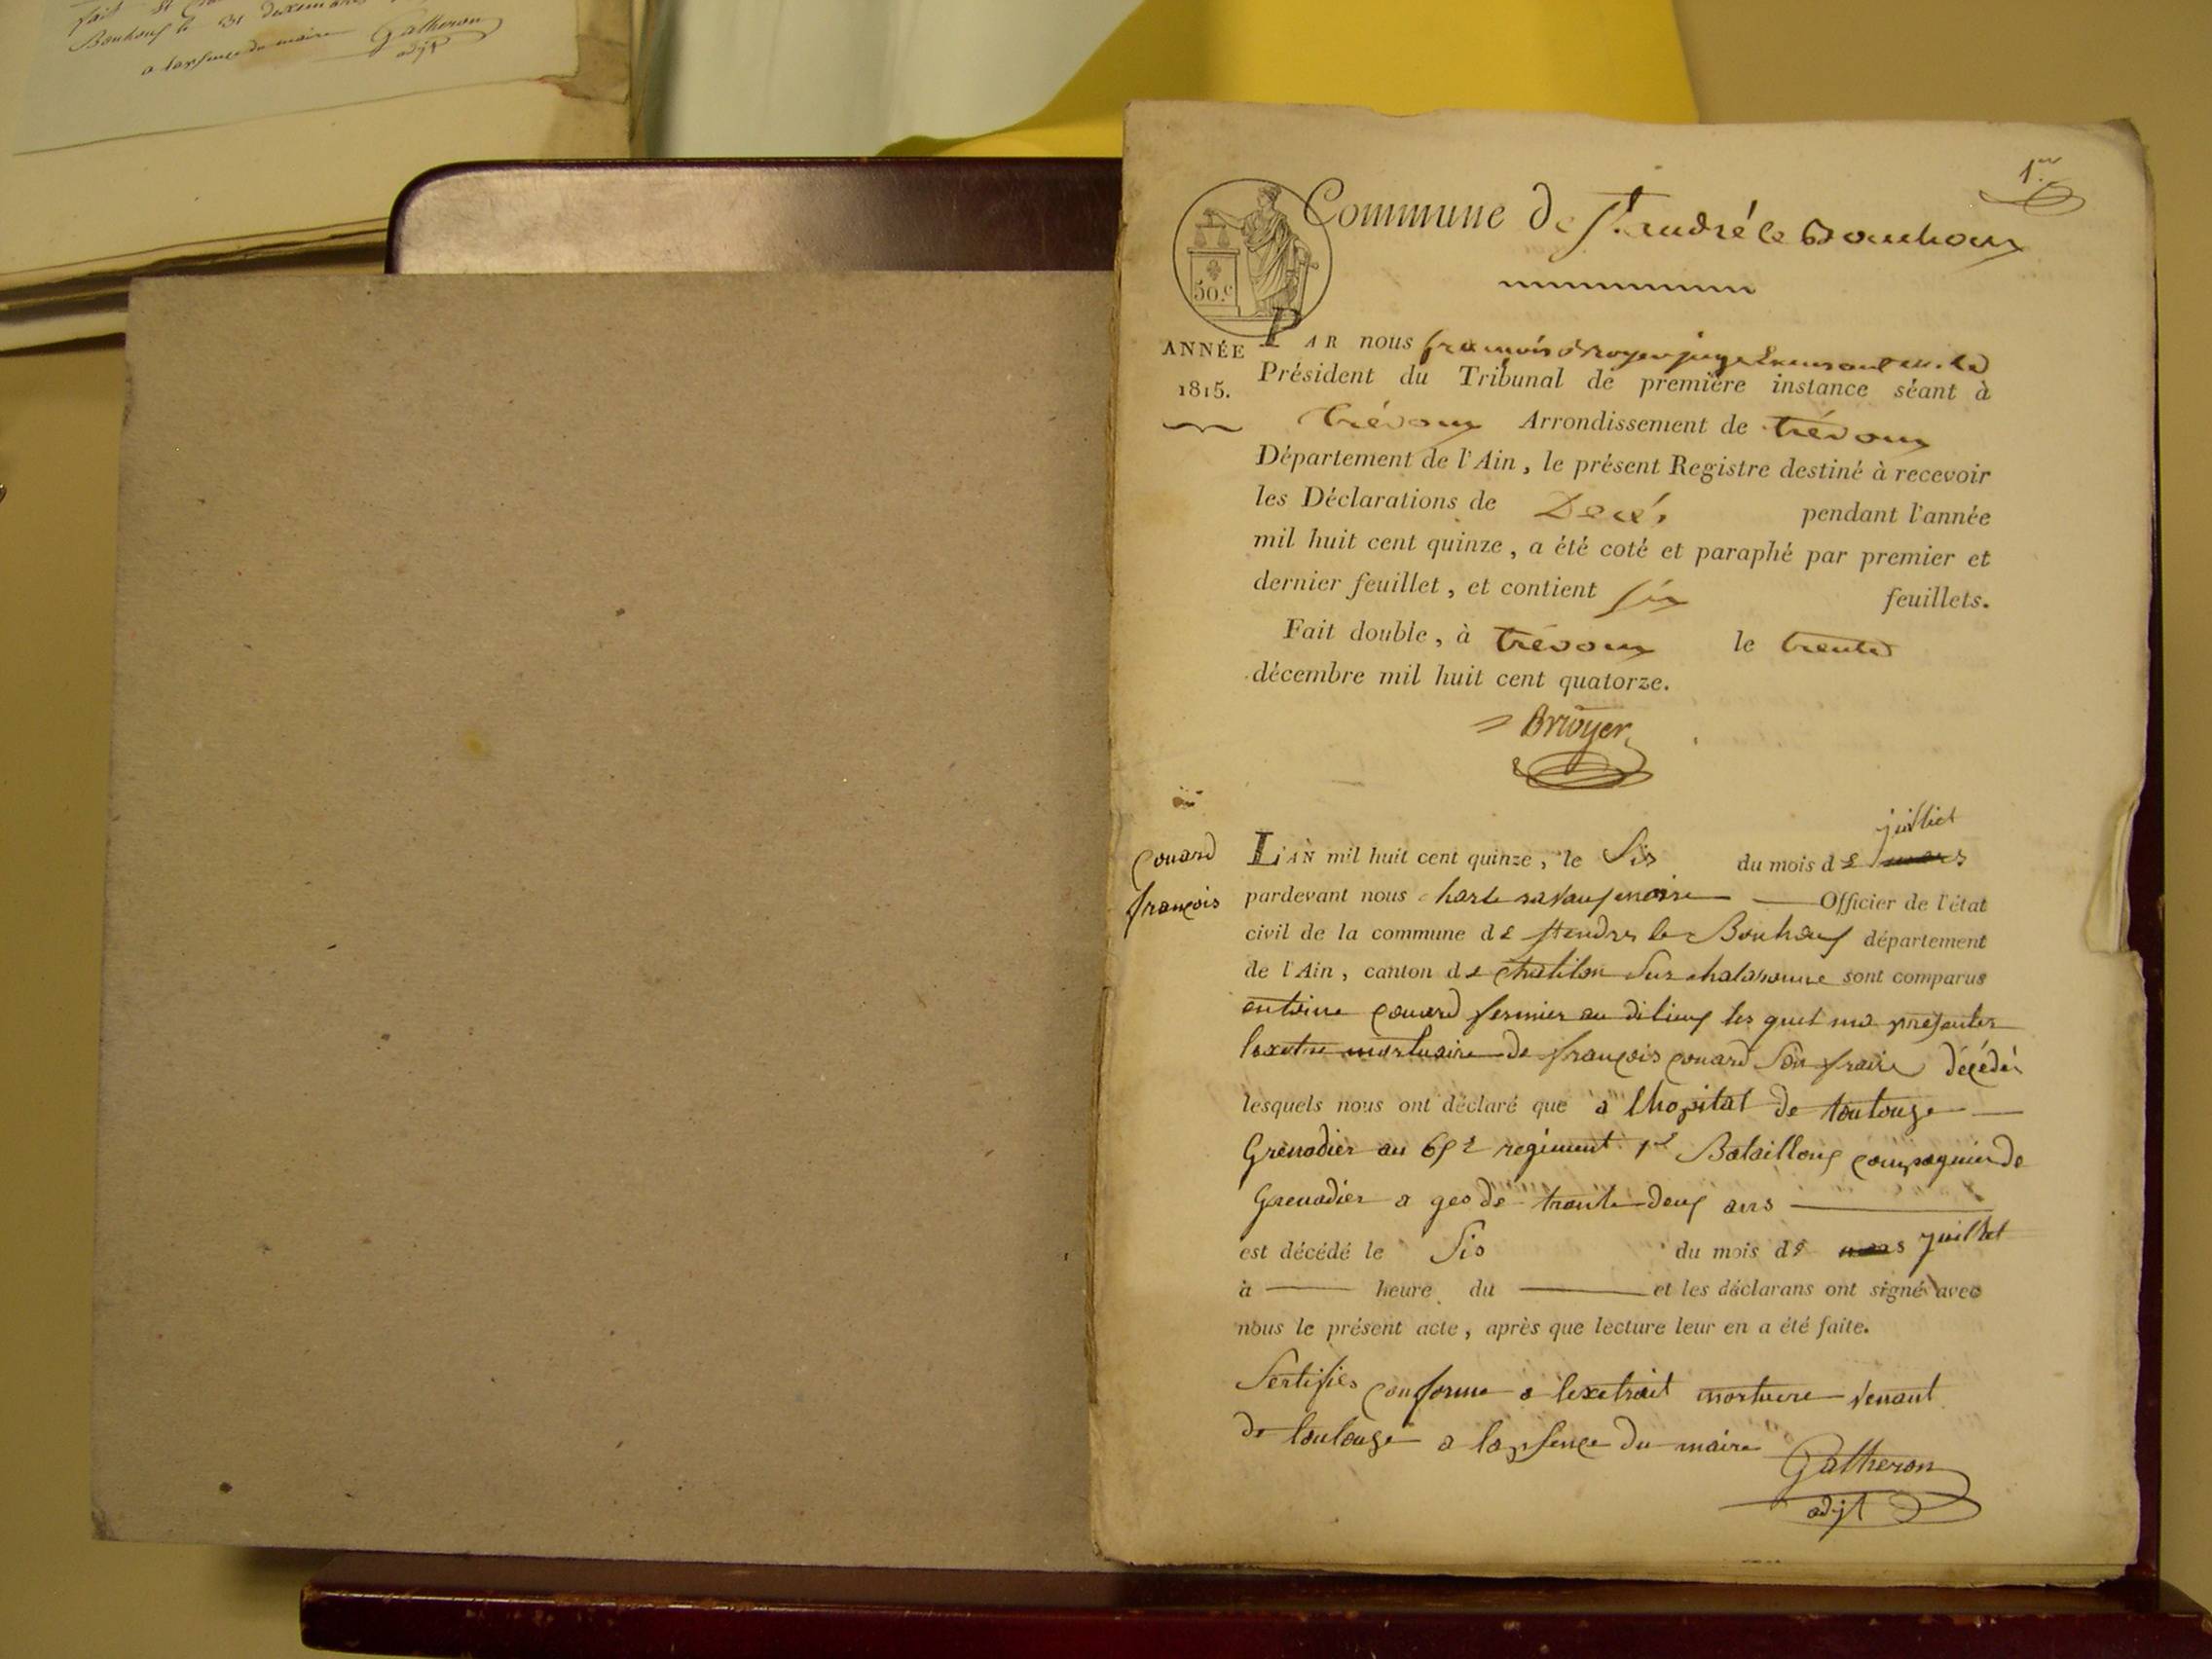 Bouhouf le 31 dexembre
a lapsence du maire Gatheron
adjt
1er
Commune de St. andré le Bouhoux
50.c
ANNÉE
1815.
PAR nous françois Brroyer juge
Président du Tribunal de première instance séant à
trévoux Arrondissement de trévoux
Département de l'Ain, le présent Registre destiné à recevoir
les Déclarations de Decés pendant l'année
mil huit cent quinze, a été coté et paraphé par premier et
dernier feuillet, et contient six feuillets.
Fait double, à trévoux le trente
décembre mil huit cent quatorze.
Brroyer
couard
françois
juilliet
L'AN mil huit cent quinze, le Sis du mois de mars
pardevant nous Officier de l'état
civil de la commune de le Bouhouf département
de l'Ain, canton de chatilon Sur chalaronne sont comparus
antoine couard fermier au dilieuf les quel ma presenter
mortuaire de françois couard Son fraire décédé
lesquels nous ont déclaré que a lhopital de toulouze
Grenadier au regiment 1er Bataillong compagnie de
Grenadier a geo de trante deuf ans
est décédé le Sis du mois de mars juillet
à heure du et les déclarans ont signé avec
nous le présent acte, après que lecture leur en a été faite.
Sertifies conforme a lexetrait mortuere venant
de toulouze a lapsence du maire
Gatheron
adjt